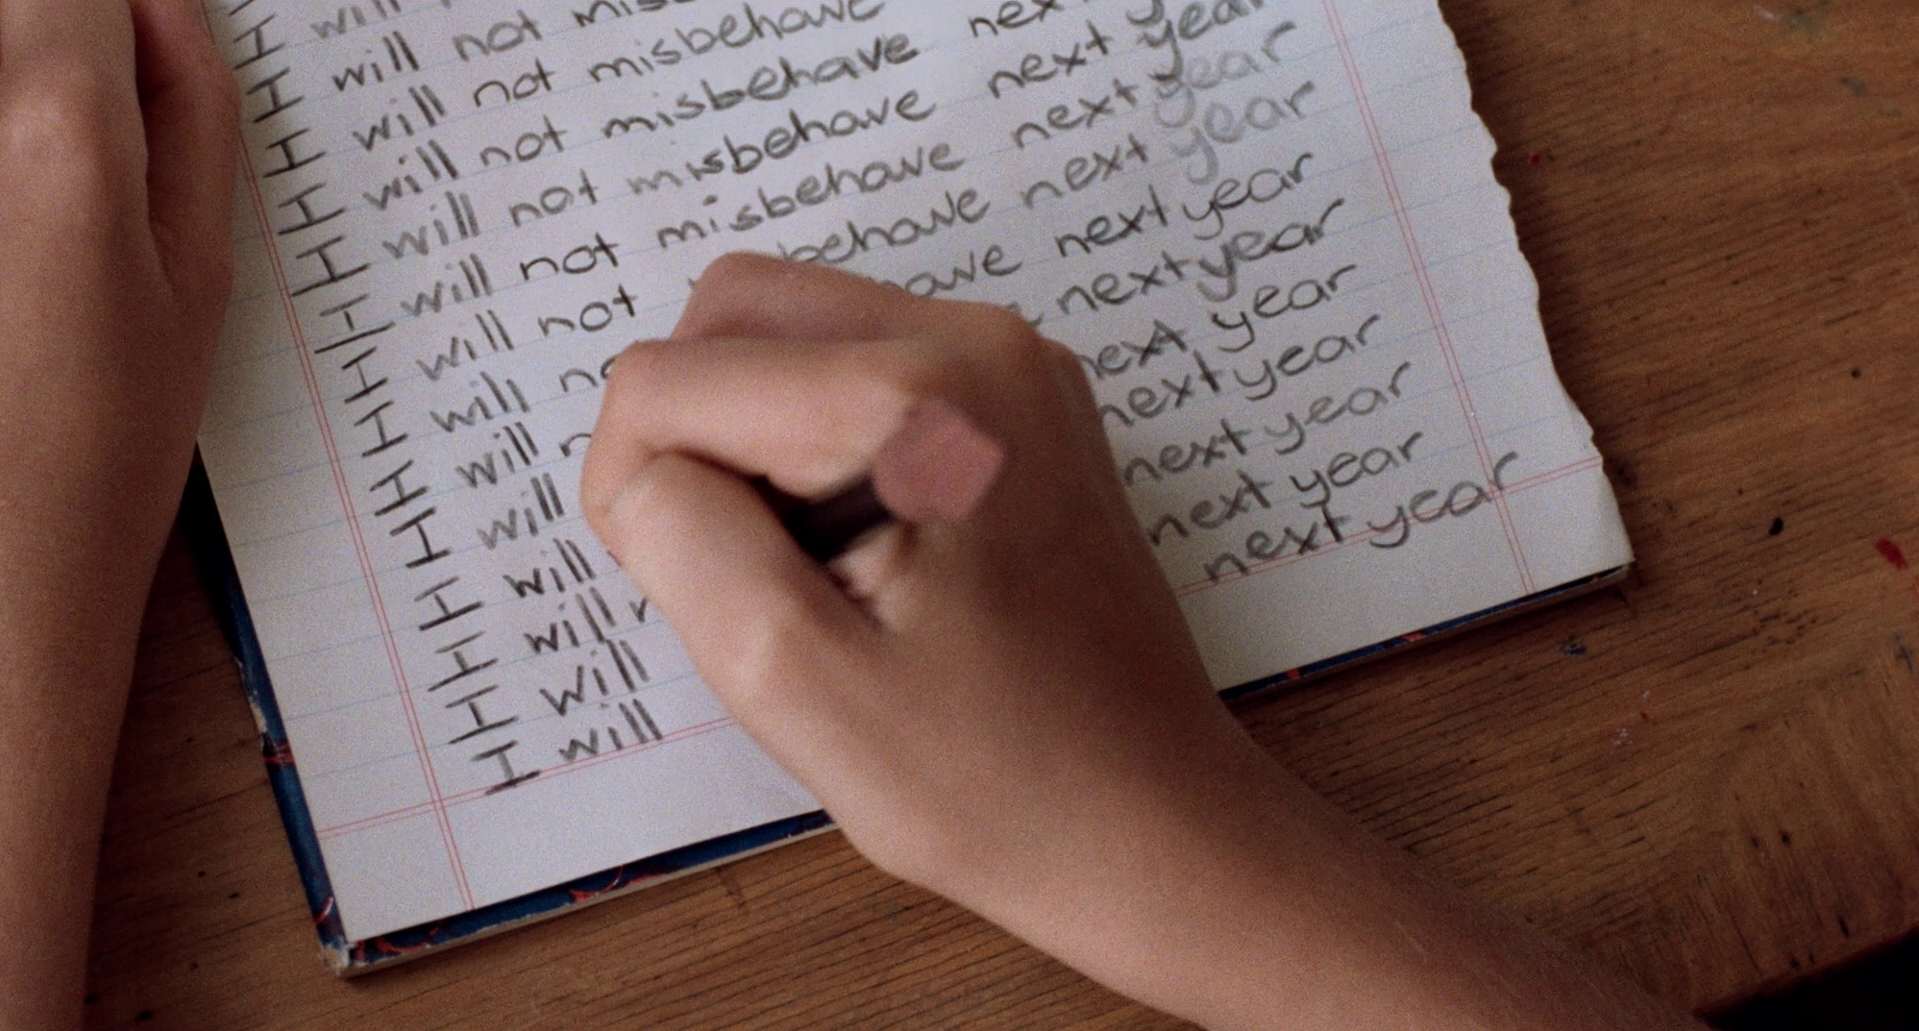 I will
I will not mis
I will not misbehave
I will not misbehave nex
I will not misbehave next year
I will not misbehave next year
I will not behave next year
I will no have next year
I will n next year
I will next year
I will next year
I will n next year
I will next year
I will next year